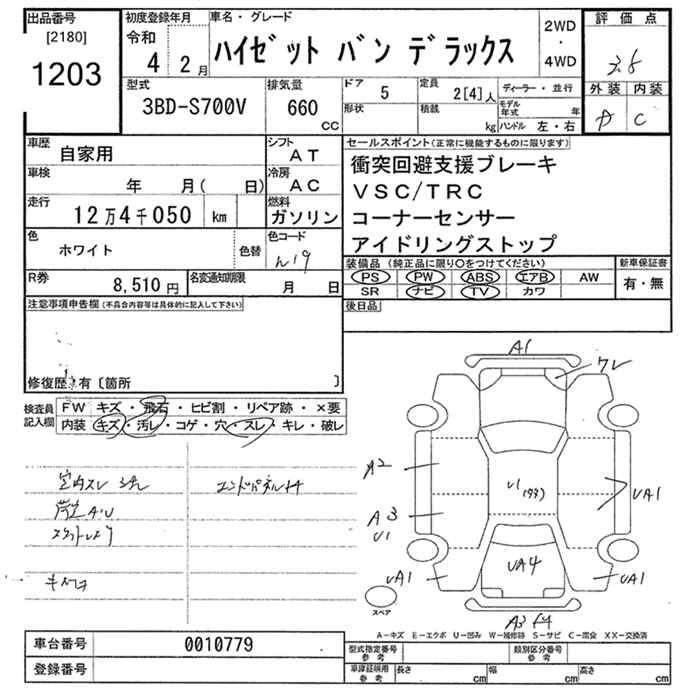 出品番号 初度登録年月 車名・グレード 2WD・4WD 評価点
[2180] 令和 4 2月 ハイゼット バン デラックス 3.5
1203
型式 排気量 ドア 5 定員 2[4]人 ディーラー・並行 外装 内装
3BD-S700V 660 CC 形状 積載 kg モデル年式 年 ハンドル 左・右 C
車歴 自家用 シフト AT セールスポイント(正常に機能するものに限ります)
車検 年 月( 日) 冷房 AC 衝突回避支援ブレーキ
走行 12万4千050 km 燃料 ガソリン VSC/TRC
色 ホワイト 色替 色コード W19 コーナーセンサー
アイドリングストップ
R券 8,510円 名変通知期限 月 日 装備品(純正品に限り○をつけてください) 新車保証書
PS PW ABS エアB AW 有・無
SR ナビ TV カワ
注意事項申告欄(不具合内容等は具体的に記入して下さい) 後日品
修復歴:有〔箇所 〕
検査員記入欄 FW キズ・飛石・ヒビ割・リペア跡・×要
内装 キズ・汚レ・コゲ・穴・スレ・キレ・破レ
室内スレ エンドパネル
A1
ワレ
A2
U1
UA1
A3
U1
UA4
UA1
UA1
スペア
A3
A-キズ E-エクボ U-凹み W-補修跡 S-サビ C-腐食 XX-交換済
車台番号 0010779 型式指定番号 参考 類別区分番号 参考
登録番号 車庫証明用 参考 長さ cm 幅 cm 高さ cm